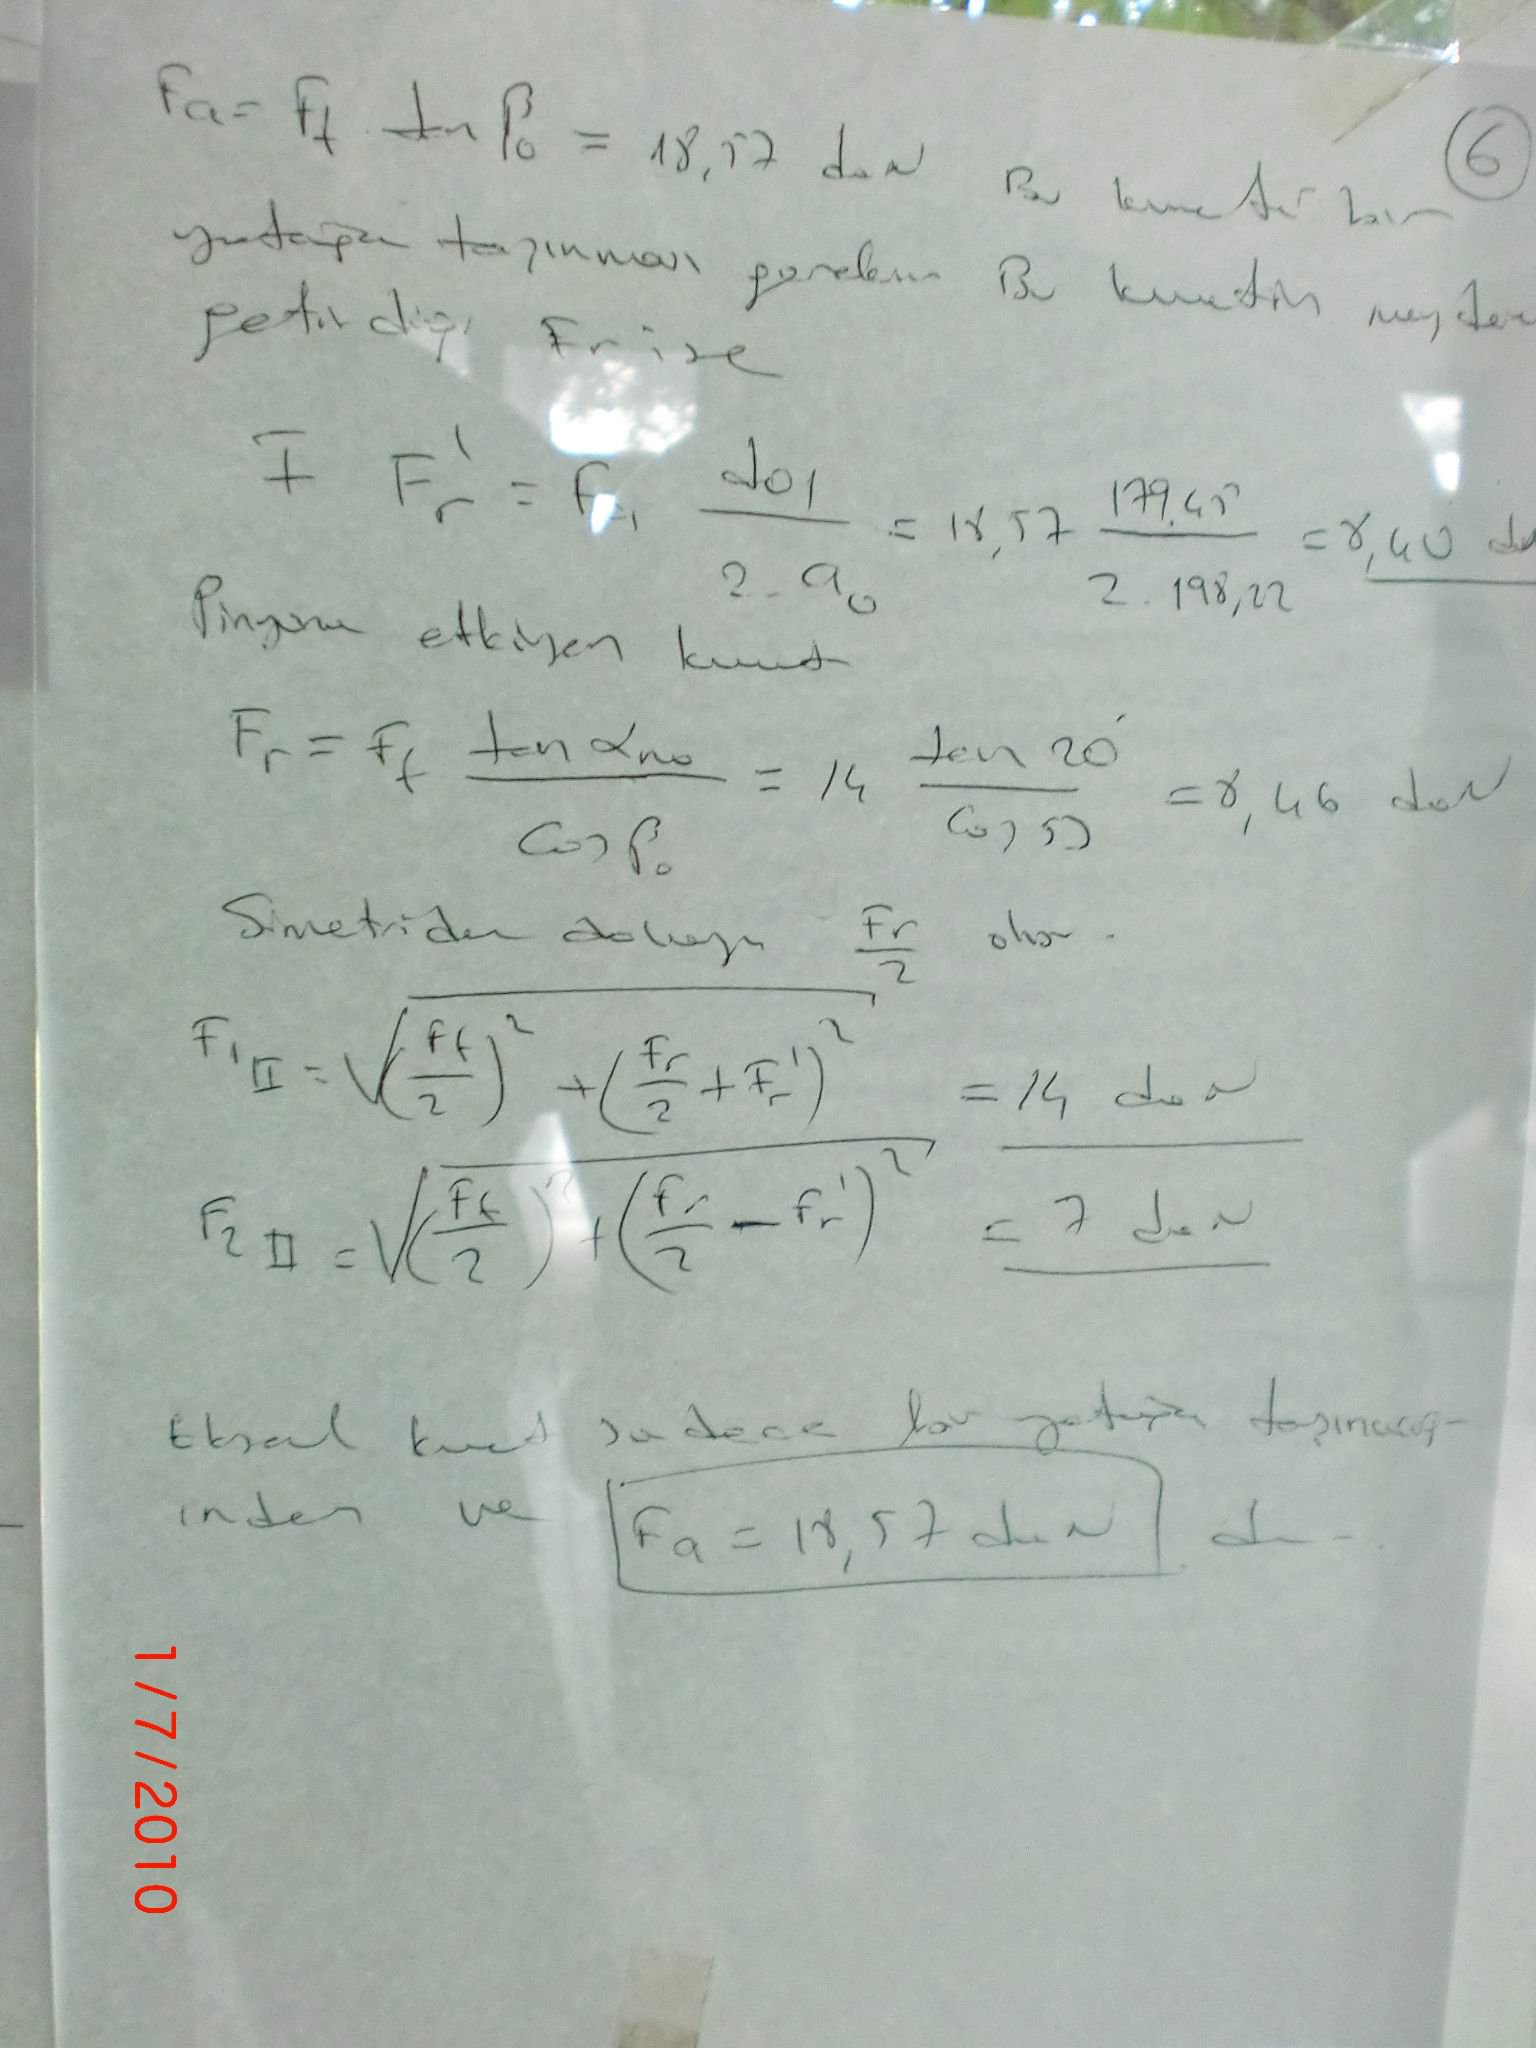 Fa = Ft . tan β₀ = 18,57 daN Bu kuvveti bir
yatağın taşınması gerekir Bu kuvvetin meydan
getirdiği Fr ise
6
I Fr' = Fa, do1 / 2.a₀ = 18,57 179,45 / 2.198,22 = 8,40 da
Pinyona etkiyen kuvvet
Fr = Ft tan αno / Cos β₀ = 14 tan 20° / Cos 53 = 8,46 daN
Simetriden dolayı Fr/2 olur.
F1 II = √((Ft/2)² + (Fr/2 + Fr')²) = 14 daN
F2 II = √((Ft/2)² + (Fr/2 - Fr')²) = 7 daN
Eksenel kuvvet sadece bir yatağın taşınacağ-
ından ve Fa = 18,57 daN dır.
1/7/2010